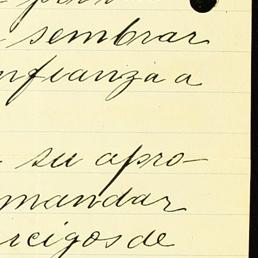 sembrar
nfianza a
su apro-
mandar
rcigos de